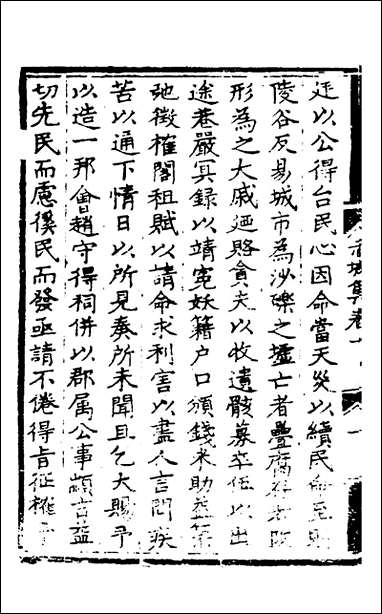 廷以公得台民心因命當天災以續民命至則
陵谷反易城市為沙礫之墟亡者疊腐存者
形為之大戚廼賂貧夫以收遺骸募卒伍以出
途巷嚴冥録以靖寃妖籍户口頒錢米助葢
弛徵榷閣租賦以請命求利害以盡人言問疾
苦以通下情日以所見奏所未聞且乞大賜予
以造一邦會趙守得祠併以郡属公事顓言益
切先民而慮徯民而發亟請不倦得旨征榷
赤城集卷十